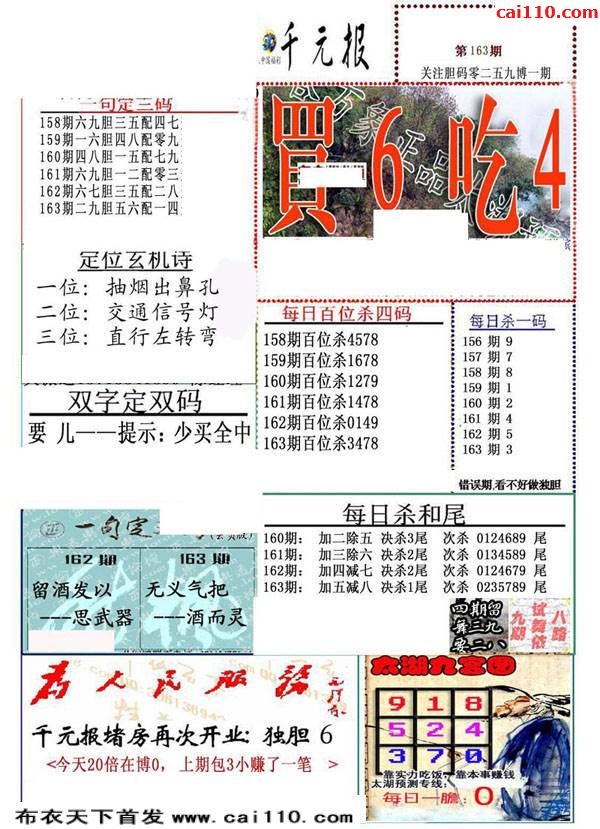 cai110.com
千元报
中国福利
第163期
关注胆码零二五九博一期
一句定三码
158期六九胆三五配四七
159期一六胆四八配零九
160期四八胆一五配七九
161期六九胆一二配零三
162期六七胆三五配二八
163期二九胆五六配一四
買6吃4
定位玄机诗
一位：抽烟出鼻孔
二位：交通信号灯
三位：直行左转弯
每日百位杀四码
158期百位杀4578
159期百位杀1678
160期百位杀1279
161期百位杀1478
162期百位杀0149
163期百位杀3478
每日杀一码
156 期 9
157 期 7
158 期 8
159 期 1
160 期 2
161 期 4
162 期 5
163 期 3
错误期,看不好做独胆
双字定双码
要 儿——提示：少买全中
每日杀和尾
160期： 加二除五 决杀3尾 次杀 0124689 尾
161期： 加三除六 决杀2尾 次杀 0134589 尾
162期： 加四减七 决杀2尾 次杀 0124679 尾
163期： 加五减八 决杀1尾 次杀 0235789 尾
一句定
162 期
留酒发以
---思武器
163 期
无义气把
---酒而灵
四期留
舞三九
零二八
九期
试舞依
八路
为人民服务
千元报堵房再次开业：独胆 6
<今天20倍在博0， 上期包3小赚了一笔 >
太湖九宫图
9 1 8
5 2 4
3 7 0
靠实力吃饭 靠本事赚钱
太湖预测专线：
每日一胆：0
布衣天下首发 www.cai110.com